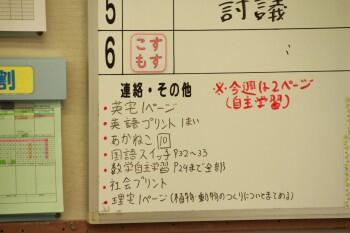 5 討議
6 こすもす
割
連絡・その他
※今週は2ページ
(自主学習)
・英宅1ページ
・英語プリント1まい
・あかねこ10
・国語スイッチP32～33
・数学自主学習P24まで全部
・社会プリント
・理宅1ページ(植物・動物のつくりについてまとめる)